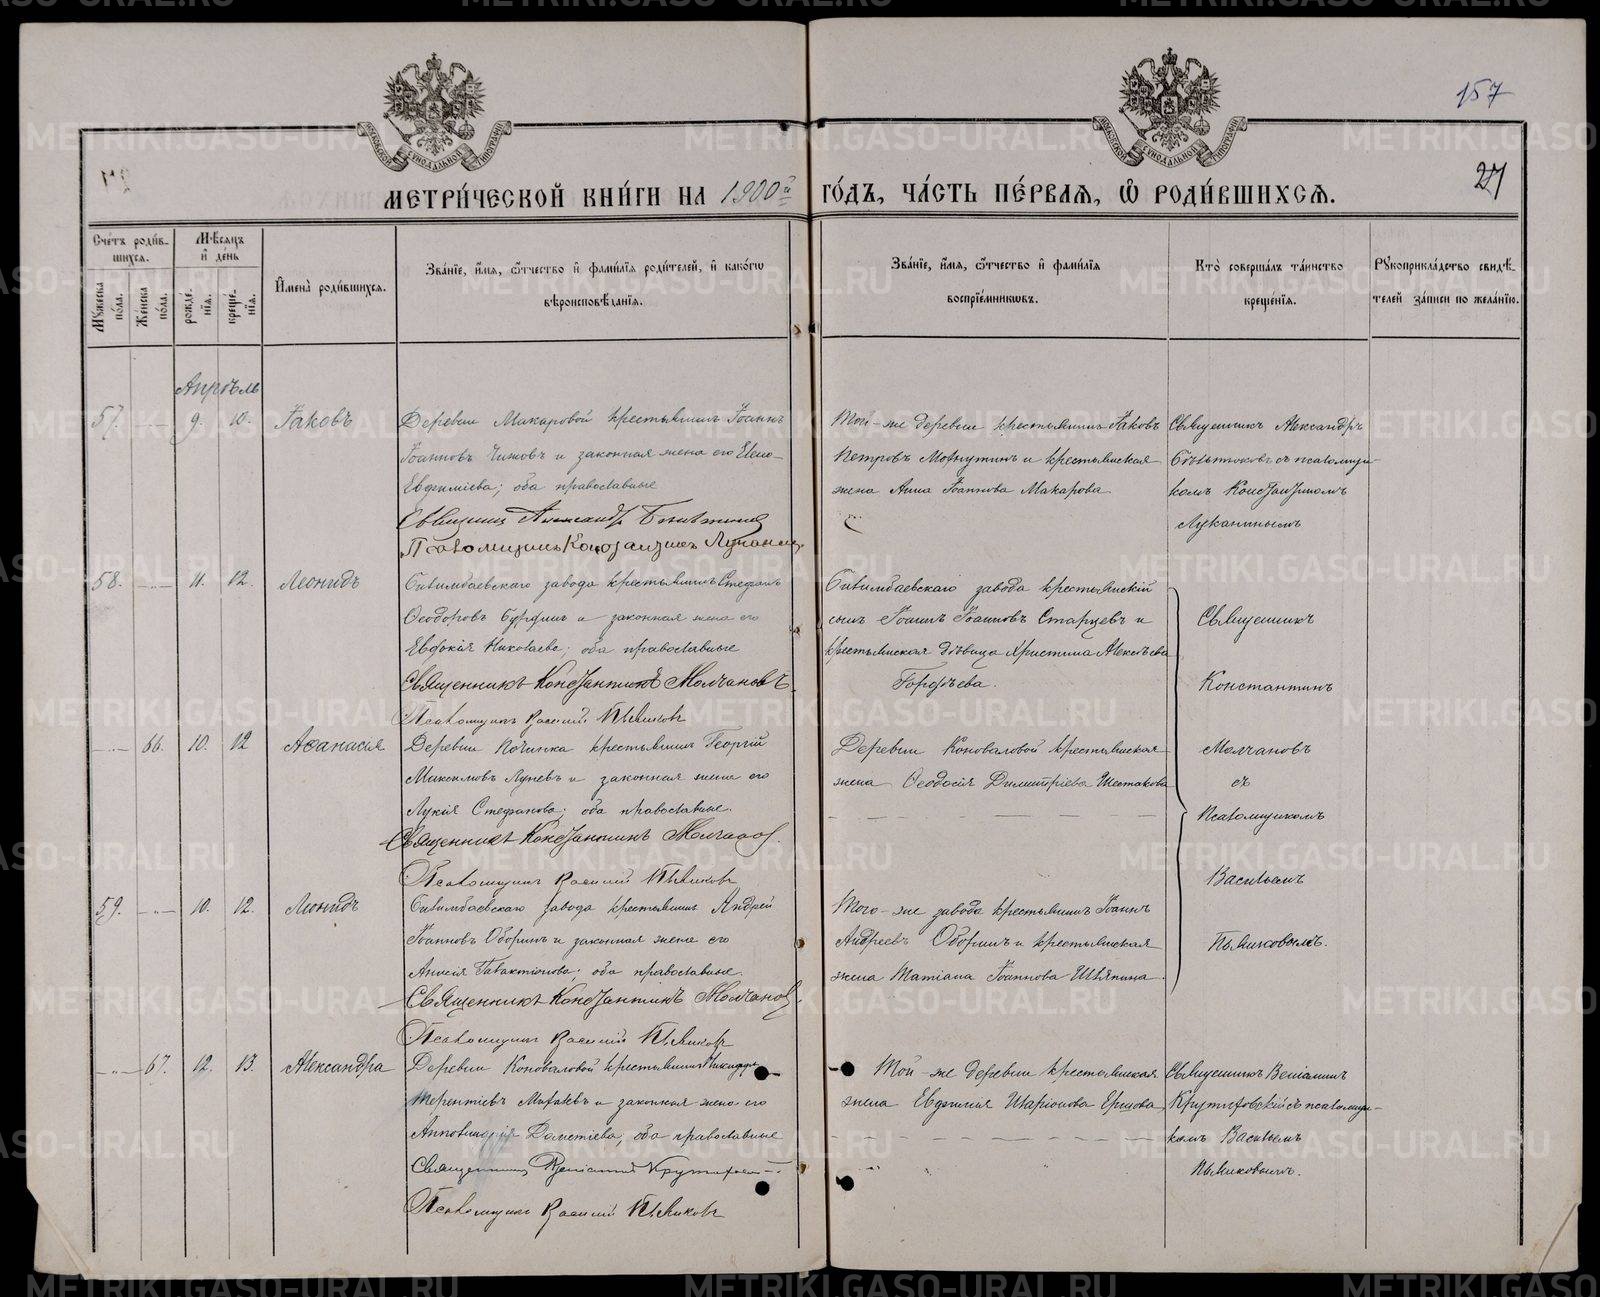 157
27
МЕТРИ́ЧЕСКОЙ КНИ́ГИ НА 1900й ГО́ДЪ, ЧА́СТЬ ПЕ́РВАЯ, Ѡ҆ РОДИ́ВШИХСЯ.
Сче́тъ роди́в-
шихся.
Мꙋ́жеска по́ла.
Же́нска по́ла.
Мѣ́сяцъ
и҆ де́нь
рожде́нїя.
креще́нїя.
И҆мена̀ роди́вшихся.
Зва́нїе, и҆́мя, ѻ҆́тчество и҆ фами́лїя роди́телей, и҆ како́гѡ
вѣроисповѣ́данїя.
Зва́нїе, и҆́мя, ѻ҆́тчество и҆ фами́лїя
воспрїе́мникѡвъ.
Кто̀ соверша́лъ та́инство
креще́нїя.
Рꙋкоприкла́дство свидѣ́-
телей за́писи по жела́нїю.
Апрѣль
57. 9. 10. Іаковъ
Деревни Макаровой крестьянинъ Іоаннъ
Іоанновъ Чижовъ и законная жена его Елена
Евфиміева; оба православные
Священникъ Александръ
Псаломщикъ Константинъ Луканинъ
Той-же деревни крестьянинъ Іаковъ
Петровъ и крестьянская
жена Анна Іоаннова Макарова.
Священникъ Александръ
съ псаломщи-
комъ Константиномъ
Луканинымъ
58. 11. 12. Леонидъ
Билимбаевскаго завода крестьянинъ Стефанъ
Ѳеодоровъ и законная жена его
Евдокія Николаева; оба православные
Священникъ Константинъ Молчановъ
Псаломщикъ Василій Пьянковъ
Билимбаевскаго завода крестьянскій
сынъ Іоаннъ Іоанновъ Старцевъ и
крестьянская дѣвица Христина Алексѣева
Гордѣева.
Священникъ
Константинъ
Молчановъ
съ
Псаломщикомъ
Васильемъ
Пьянковымъ.
66. 10. 12 Аѳанасія
Деревни Починка крестьянинъ Георгій
Максимовъ Луневъ и законная жена его
Лукія Стефанова; оба православные.
Священникъ Константинъ Молчановъ.
Псаломщикъ Василій Пьянковъ
Деревни Коноваловой крестьянская
жена Ѳеодосія Димитріева Шестакова
59. 10. 12. Леонидъ
Билимбаевскаго завода крестьянинъ Андрей
Іоанновъ Оборинъ и законная жена его
Анисія Галактіонова; оба православные.
Священникъ Константинъ Молчановъ
Псаломщикъ Василій Пьянковъ
Того-же завода крестьянинъ Іоаннъ
Андреевъ Оборинъ и крестьянская
жена Татіана Іоаннова Шляпина.
67. 12. 13. Александра
Деревни Коноваловой крестьянинъ Никифоръ
Терентіевъ и законная жена его
Апполинарія Дометіева, оба православные
Священникъ Веніаминъ
Псаломщикъ Василій Пьянковъ
Той-же деревни крестьянская
жена Евфимія Иларіонова Ершова
Священникъ Веніаминъ
съ псаломщи-
комъ Васильемъ
Пьянковымъ.
METRIKI.GASO-URAL.RU